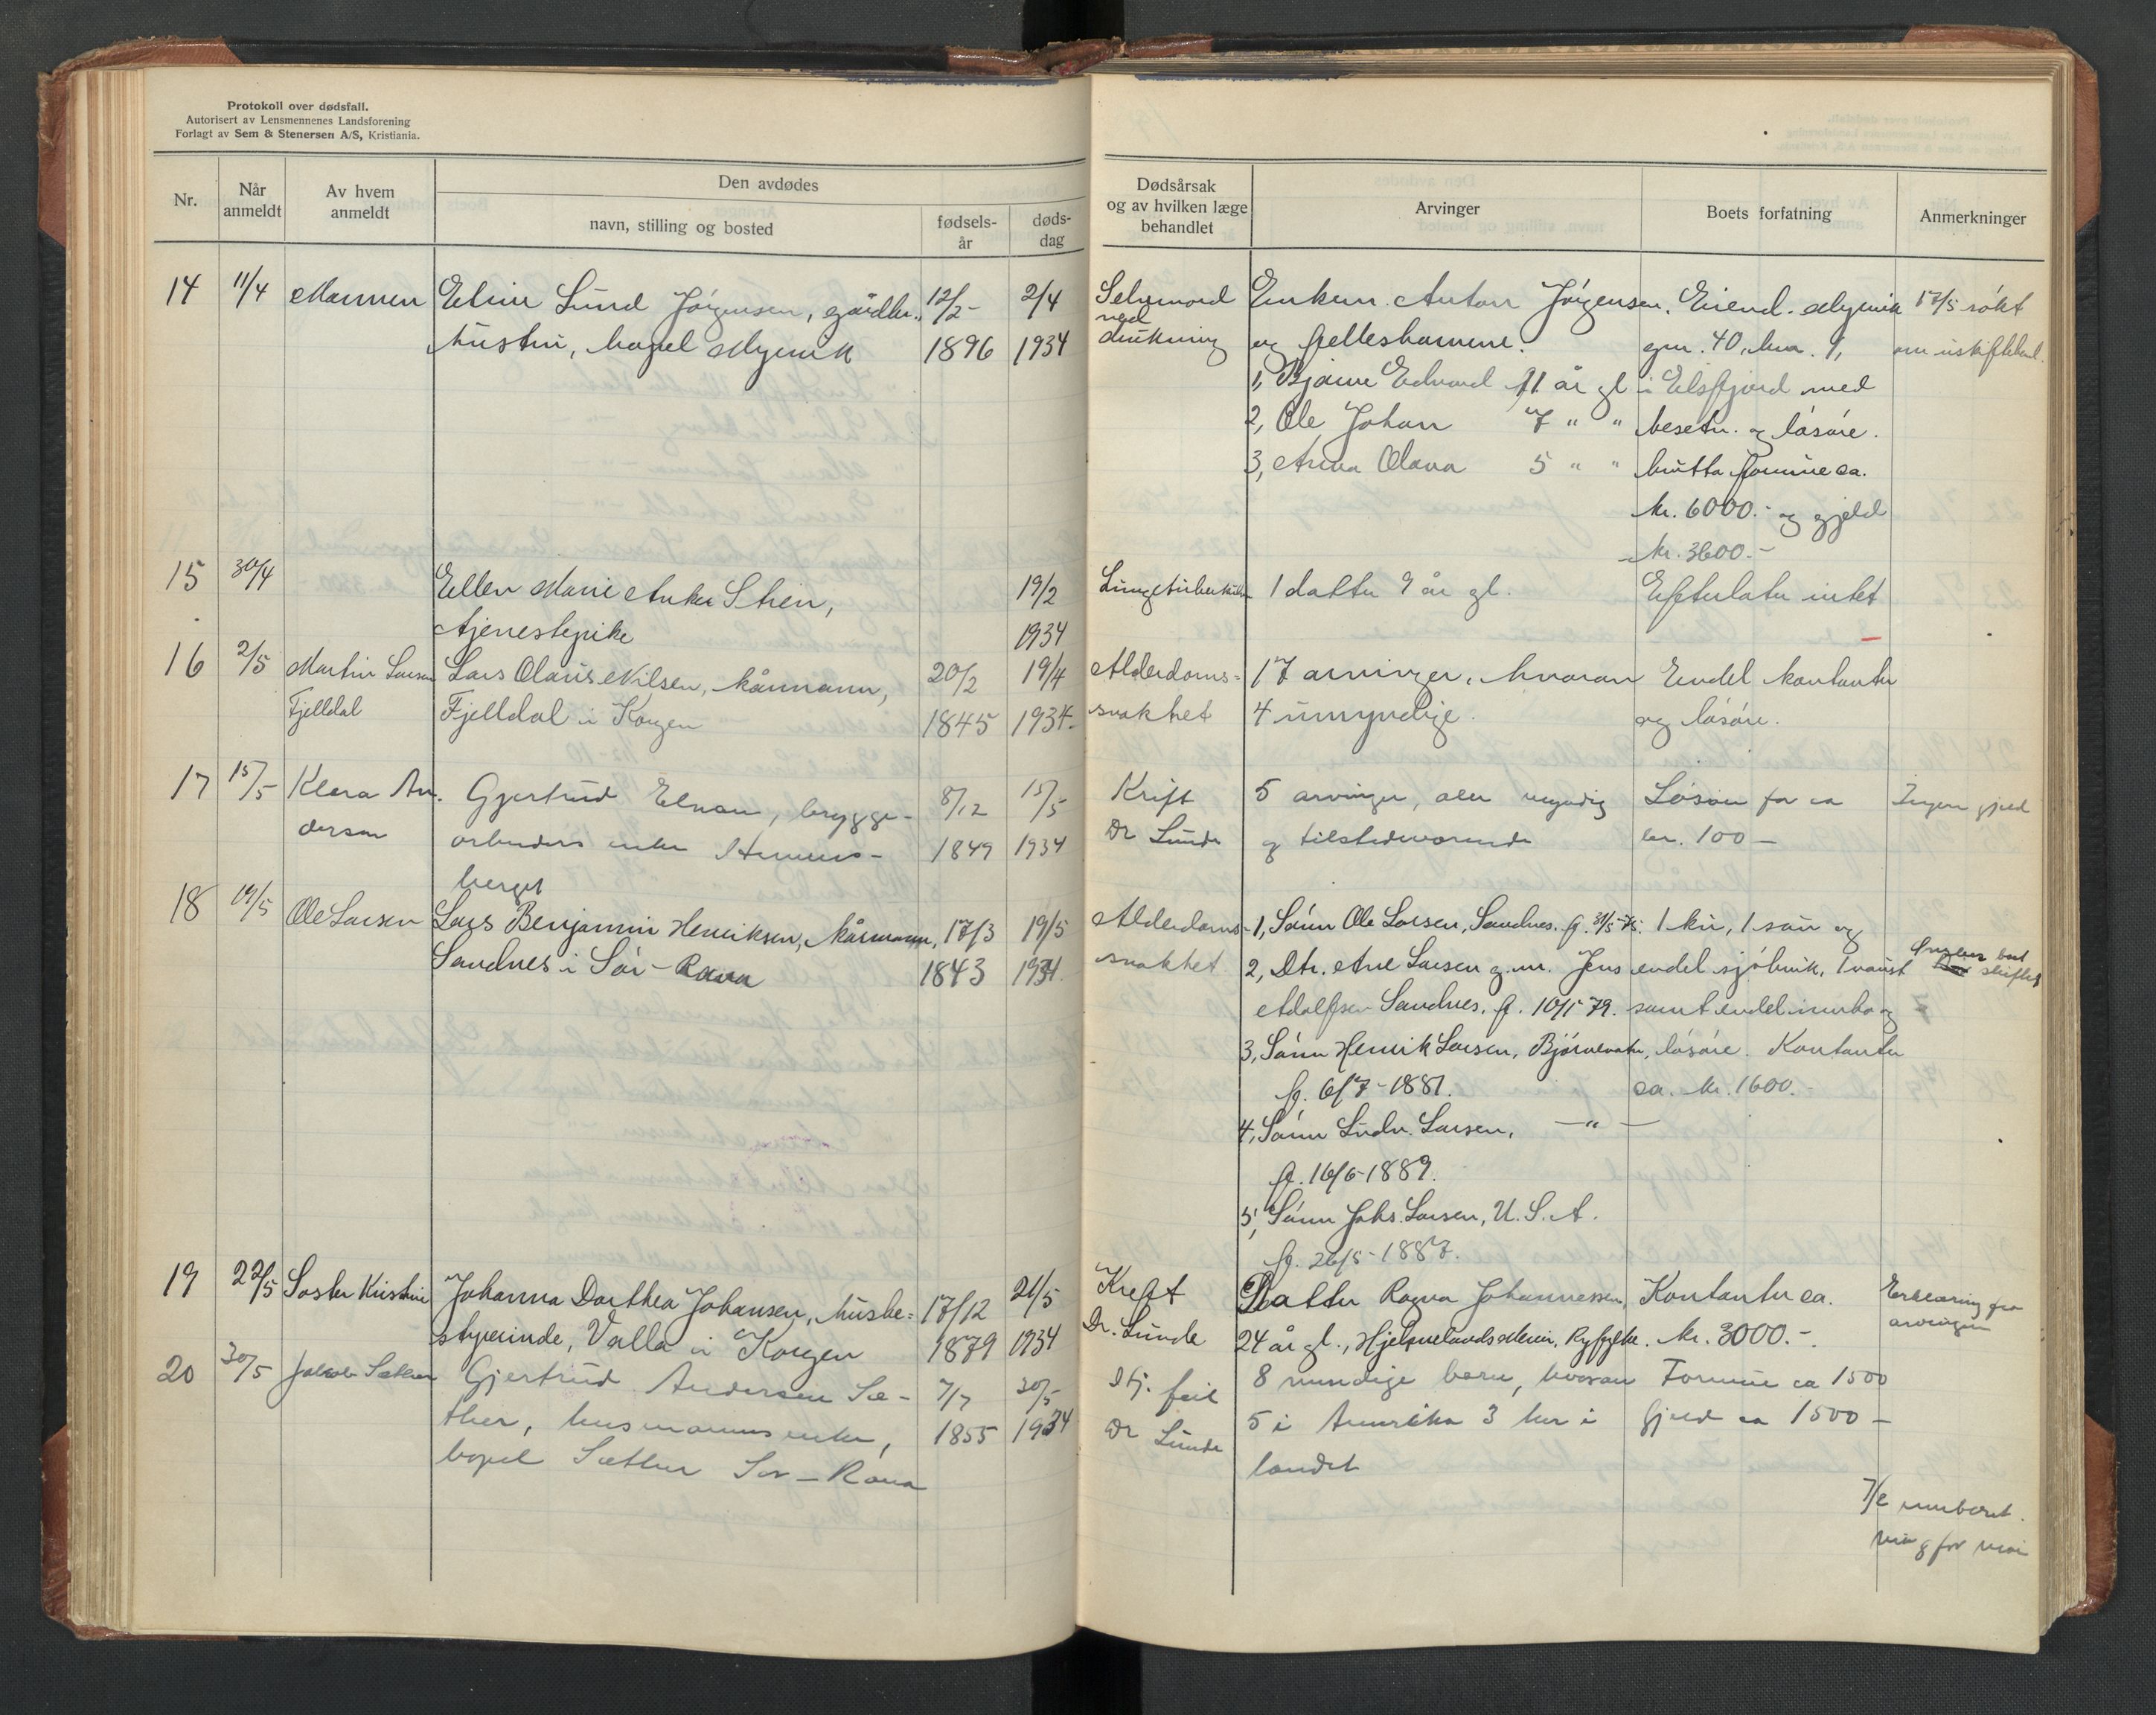 Protokoll over dødsfall.
Autorisert av Lensmennenes Landsforening
Forlagt av Sem & Stenersen A/S, Kristiania.
Nr.
Når anmeldt
Av hvem anmeldt
Den avdødes
navn, stilling og bosted
fødsels-år
døds-dag
Dødsårsak og av hvilken læge behandlet
Arvinger
Boets forfatning
Anmerkninger
14 11/4 Mannen Eline Lund Jørgensen, gårdbr. 12/2- 2/4
hustru, bopel 1896 1934
Selvmord ved drukning
Enkem. Anton Jörgensen
og fellesbarnene.
1, Bjarne Edvard 11 år gl
2, Ole Johan 7 " "
3, Anna Olava 5 " "
Eiend.
gnr. 40, bnr. 1,
i Elsfjord med
besetn. og lösöre.
brutto formue ca.
kr. 6000.- og gjeld
kr. 3600.-
17/5 sökt
om uskiftebevl.
15 30/4 Ellen Marie Anker Stien, 19/2
tjenestepike 1934
Lungetuberkulose
1 datter 9 år gl.
Efterlater intet
16 2/5 Martin Larsen Lars Olaus Nilsen, kårmann, 20/2 19/4
Fjelldal Fjelldal i Korgen 1845 1934.
Alderdoms-
svakhet
17 arvinger, hvorav
4 umyndige.
Endel kontanter
og lösöre.
17 15/5 Klara An- Gjertrud Elvan, brygge- 8/12 15/5
dersen arbeiders enke Hemnes- 1849 1934
berget
Kreft
Dr Lunde
5 arvinger, aller myndig
og tilstedeværende
Lösöre for ca
kr. 100 —
Ingen gjeld
18 19/5 Ole Larsen Lars Benjamin Henriksen, kårmann, 17/3 19/5
Sandnes i Sör-Rana 1843 1934.
Alderdoms-
svakhet
1, Sönn Ole Larsen, Sandnes. f. 31/5-75.
2, Dtr. Ane Larsen g.m. Jens
Adolfsen Sandnes. f. 10/5 79.
3, Sönn Henrik Larsen, Björnevatn,
f. 6/7-1881.
4, Sönn Ludv. Larsen, — " —
f. 16/6-1889.
5, Sönn Johs. Larsen, U. S. A.
f. 26/5-1887.
1 ku, 1 sau og
endel sjöbruk, 1 naust
samt endel innbo og
lösöre. Kontanter
ca. kr. 1600.-
skiftet
19 22/5 Söster Kristine Johanna Dorthea Johansen, husbe- 17/12 21/5
styrerinde, Valla i Korgen 1879 1934
Kreft
Dr. Lunde
Datter Ragna Johannessen,
24 år gl., Hjelmelandsöen, Ryfylke.
Kontanter ca.
kr. 3000.-
Erklæring fra
arvingen
20 30/5 Jakob Sæther Gjertrud Andersen Sæ- 7/7 30/5
ther, husmanns enke, 1855 1934
bopel Sæther Sør-Rana
Hj. feil
Dr Lunde
8 myndige barn, hvorav
5 i Amerika 3 her i
landet
Formue ca 1500
Gjeld ca 1500 —
7/6 innberet.
ning for mai